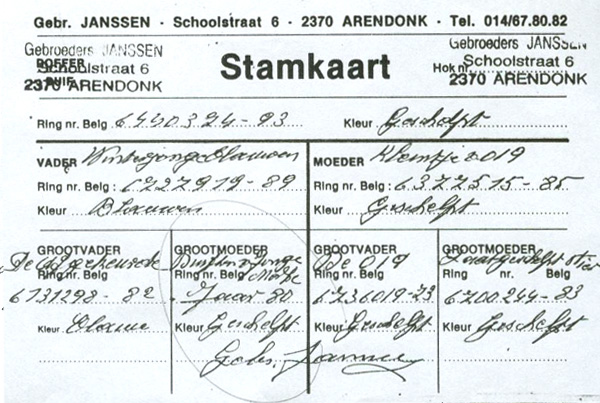 Gebr. JANSSEN · Schoolstraat 6 · 2370 ARENDONK · Tel. 014/67.80.82
Gebroeders JANSSEN
Schoolstraat 6
2370 ARENDONK
DOFFER
DUIF
Stamkaart
Gebroeders JANSSEN
Hok nr. Schoolstraat 6
2370 ARENDONK
Ring nr. Belg 6440324-93 Kleur Geschelpt
VADER
Ring nr. Belg: 6227919-89
Kleur Blauwen
MOEDER Kleintje 019
Ring nr. Belg: 6372515-85
Kleur Geschelpt
GROOTVADER
Ring nr. Belg
6731298-82
Kleur Blauwe
GROOTMOEDER
Ring nr. Belg
Jaar 80
Kleur Geschelpt
GROOTVADER
De 019
Ring nr. Belg
6736019-73
Kleur Geschelpt
GROOTMOEDER
Ring nr. Belg
6700244-83
Kleur Geschelpt
Gebr. Janssen